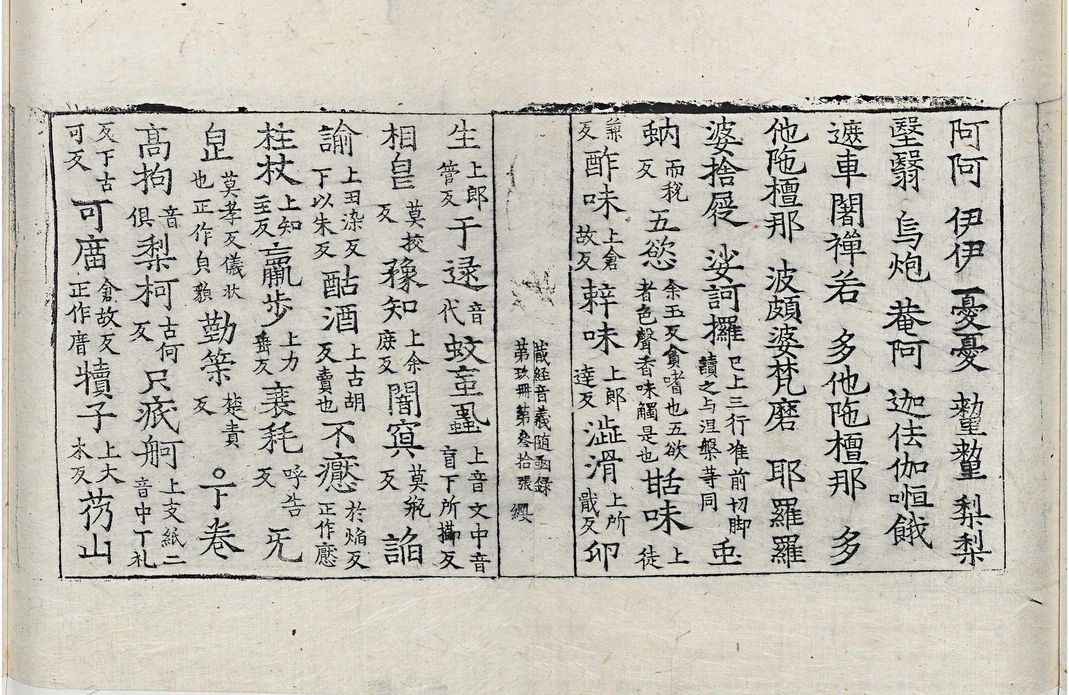 阿阿 伊伊 憂憂 𨤲𨤲 梨梨
堅翳 烏炮 菴阿 迦佉伽𠷐餓
遮車闍禪若 多他陁檀那 多
他陁檀那 波頗婆梵磨 耶羅羅
婆捨屣 娑訶攞 已上三行准前切脚讀之与涅槃䓁同 䖝
蚋 而稅反 五慾 余玉反貪嗜也五欲者色聲香味觸是也 甛味 上徒
兼反 酢味 上倉故反 㯿味 上郎達反 澁滑 上所戢反 卵
藏経音義随函録
第玖冊第叁拾張 纓
生 上郎管反 于逯 音代 蚊䖝蝨 上音文中音盲下所擳反
相皃 莫挍反 豫知 上余庶反 闇㝠 莫瓶反 諂
諭 上丑染反下以朱反 酤酒 上古胡反賣也 不㾾 於焰反正作懕
柱杖 上知主反 羸步 上力垂反 衰秏 呼告反 旡
皃 莫孝反儀狀也正作皃䫉 勤䇿 楚責反 ○下卷
髙拘 音俱 梨柯 古何反 尺疷舸 上支紙二音中丁礼
反下古可反 可厝 倉故反正作厝 犢子 上大木反 芿山